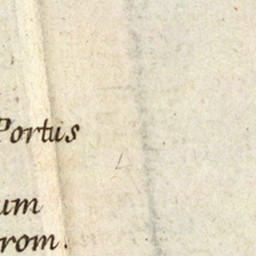 Portus
um
rom.